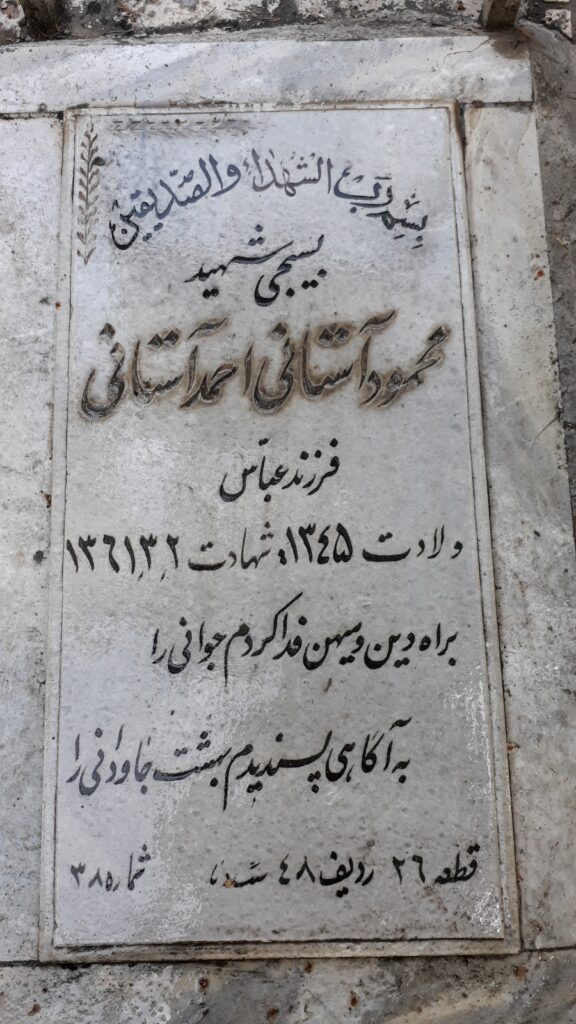 بِسْمِ رَبِّ الشهداء والصّدیقین
بسیجی شهید
محمود آستانی احمد آستانی
فرزند عباس
ولادت ۱۳٤۵ شهادت ۱۳٦۱٫۳٫۲
براه دین و میهن فدا کردم جوانی را
به آگاهی پسندیدم بهشت جاودانی را
قطعه ۲٦ ردیف ٤۸ شماره ۳۸